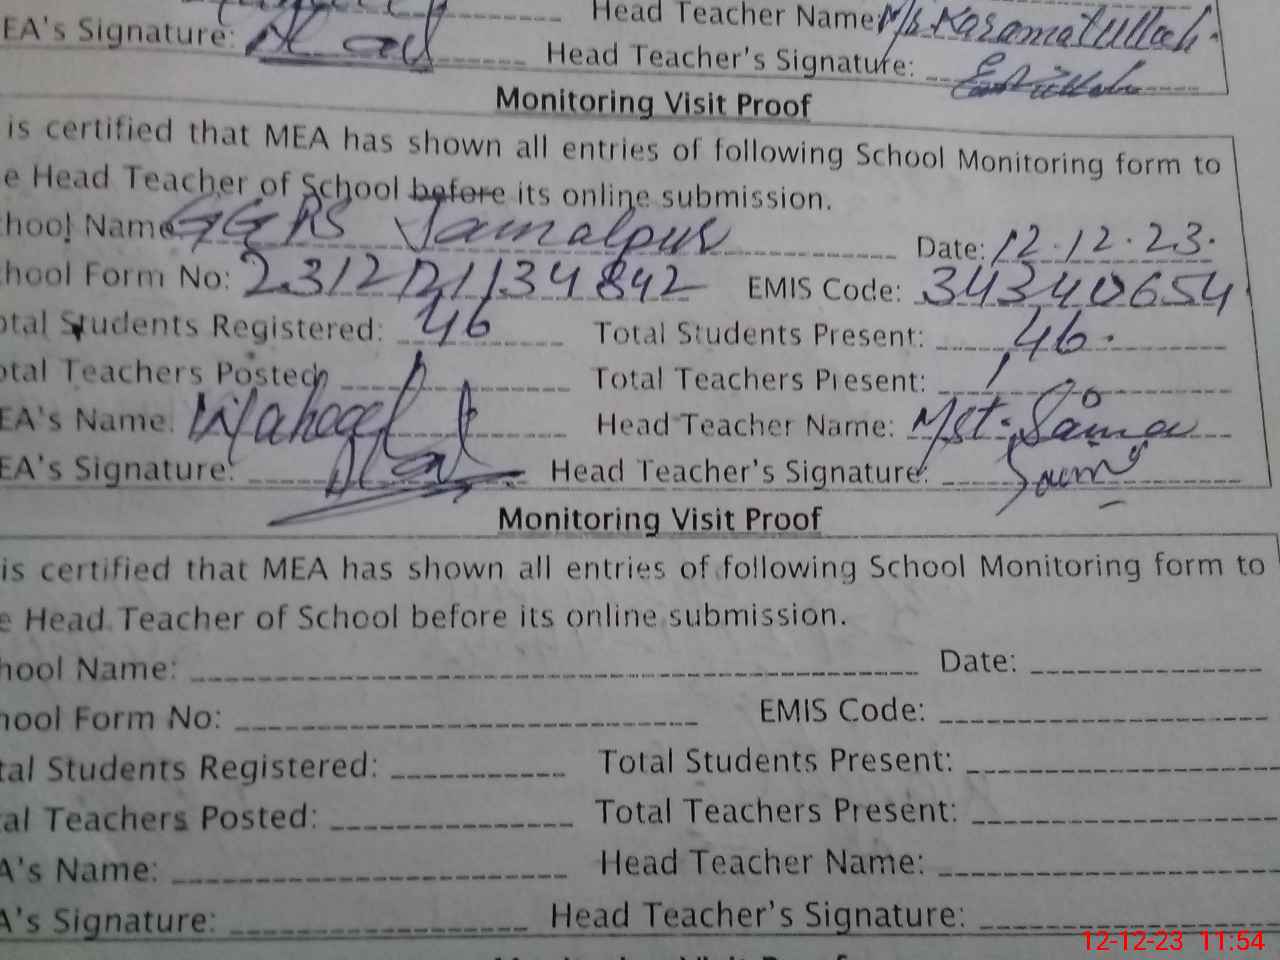 EA's Signature: Head Teacher Name M/s Karamatullah.
Head Teacher's Signature:
Monitoring Visit Proof
is certified that MEA has shown all entries of following School Monitoring form to
e Head Teacher of School before its online submission.
chool Name GGPS Jamalpur Date: 12.12.23.
chool Form No: 231212134842 EMIS Code: 34340654
otal Students Registered: 46 Total Students Present: 46.
otal Teachers Posted: Total Teachers Present: 1
EA's Name: Waheed Head Teacher Name: Mst. Saima
EA's Signature: Head Teacher's Signature: Saima
Monitoring Visit Proof
is certified that MEA has shown all entries of following School Monitoring form to
e Head Teacher of School before its online submission.
hool Name: Date:
hool Form No: EMIS Code:
tal Students Registered: Total Students Present:
al Teachers Posted: Total Teachers Present:
A's Name: Head Teacher Name:
A's Signature: Head Teacher's Signature:
12-12-23 11:54